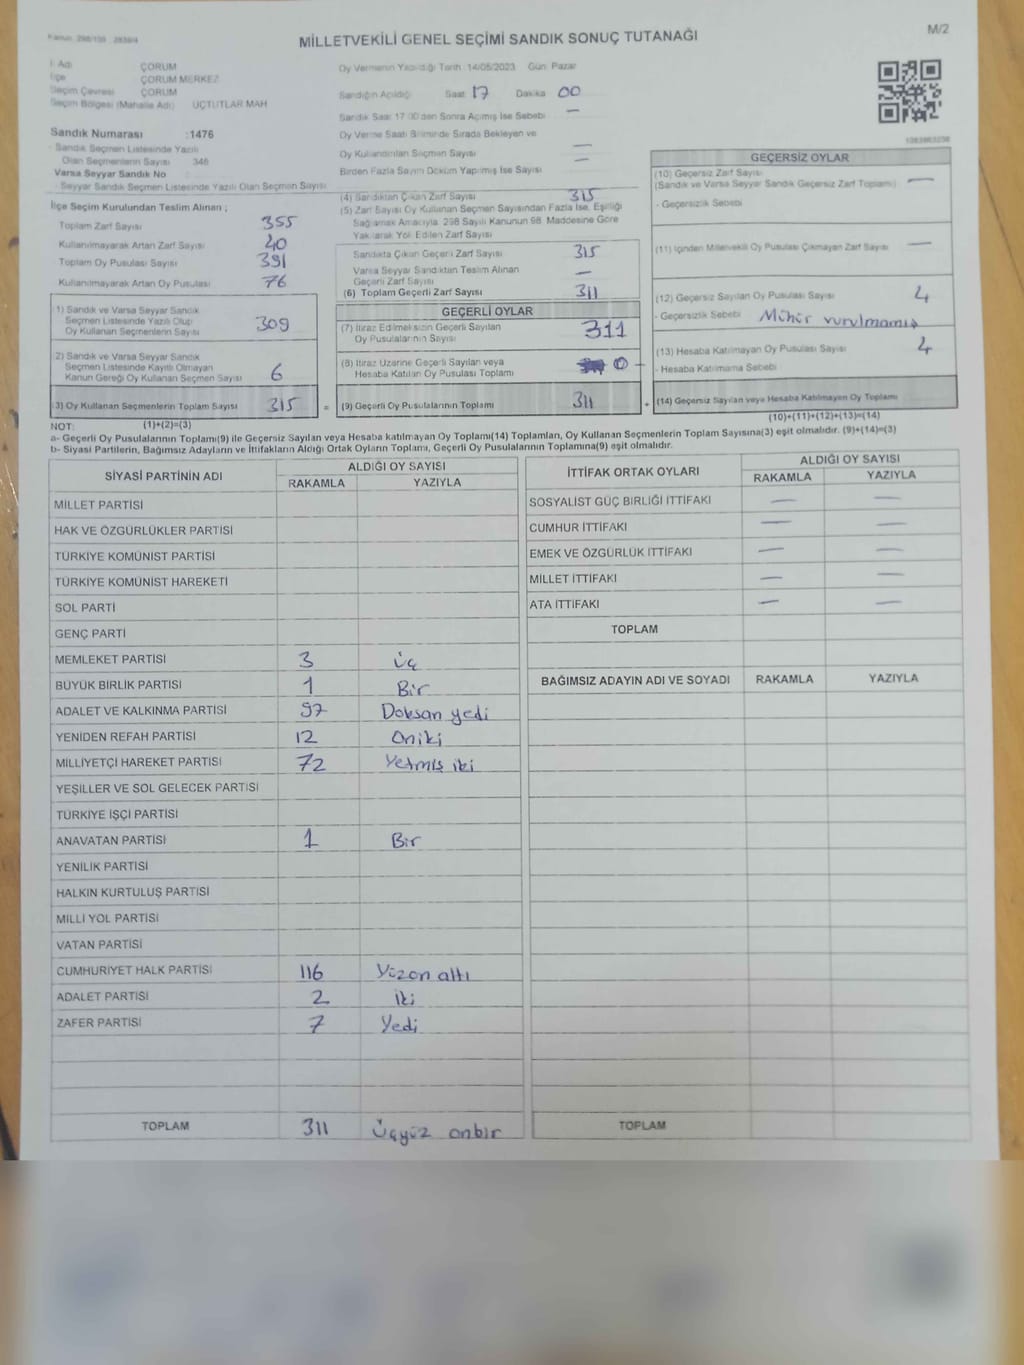 Kanun: 298/105 2839/4
MİLLETVEKİLİ GENEL SEÇİMİ SANDIK SONUÇ TUTANAĞI
M/2
İl Adı ÇORUM
İlçe ÇORUM MERKEZ
Seçim Çevresi ÇORUM
Seçim Bölgesi (Mahalle Adı) UÇTUTLAR MAH
Sandık Numarası : 1476
Sandık Seçmen Listesinde Yazılı
Olan Seçmenlerin Sayısı 346
Varsa Seyyar Sandık No
Seyyar Sandık Seçmen Listesinde Yazılı Olan Seçmen Sayısı
İlçe Seçim Kurulundan Teslim Alınan ;
Toplam Zarf Sayısı 355
Kullanılmayarak Artan Zarf Sayısı 40
Toplam Oy Pusulası Sayısı 391
Kullanılmayarak Artan Oy Pusulası 76
1) Sandık ve Varsa Seyyar Sandık
Seçmen Listesinde Yazılı Olup
Oy Kullanan Seçmenlerin Sayısı 309
2) Sandık ve Varsa Seyyar Sandık
Seçmen Listesinde Kayıtlı Olmayan
Kanun Gereği Oy Kullanan Seçmen Sayısı 6
(3) Oy Kullanan Seçmenlerin Toplam Sayısı 315 =
Oy Vermenin Yapıldığı Tarih :14/05/2023 Gün: Pazar
Sandığın Açıldığı Saat 17 Dakika 00
Sandık Saat 17:00'den Sonra Açılmış İse Sebebi —
Oy Verme Saati Bitiminde Sırada Bekleyen ve
Oy Kullandırılan Seçmen Sayısı —
Birden Fazla Sayım Döküm Yapılmış İse Sayısı —
(4) Sandıktan Çıkan Zarf Sayısı 315
(5) Zarf Sayısı Oy Kullanan Seçmen Sayısından Fazla İse, Eşitliği
Sağlamak Amacıyla 298 Sayılı Kanunun 98. Maddesine Göre
Yakılarak Yok Edilen Zarf Sayısı
Sandıkta Çıkan Geçerli Zarf Sayısı 315
Varsa Seyyar Sandıktan Teslim Alınan
Geçerli Zarf Sayısı —
(6) Toplam Geçerli Zarf Sayısı 311
GEÇERLİ OYLAR
(7) İtiraz Edilmeksizin Geçerli Sayılan
Oy Pusulalarının Sayısı 311
(8) İtiraz Üzerine Geçerli Sayılan veya
Hesaba Katılan Oy Pusulası Toplamı 0
(9) Geçerli Oy Pusulalarının Toplamı 311 +
GEÇERSİZ OYLAR
(10) Geçersiz Zarf Sayısı
(Sandık ve Varsa Seyyar Sandık Geçersiz Zarf Toplamı) —
- Geçersizlik Sebebi
(11) İçinden Milletvekili Oy Pusulası Çıkmayan Zarf Sayısı —
(12) Geçersiz Sayılan Oy Pusulası Sayısı 4
- Geçersizlik Sebebi Mühür vurulmamış
(13) Hesaba Katılmayan Oy Pusulası Sayısı 4
- Hesaba Katılmama Sebebi
(14) Geçersiz Sayılan veya Hesaba Katılmayan Oy Toplamı
NOT: (1)+(2)=(3) (10)+(11)+(12)+(13)=(14)
a- Geçerli Oy Pusulalarının Toplamı(9) ile Geçersiz Sayılan veya Hesaba katılmayan Oy Toplamı(14) Toplamları, Oy Kullanan Seçmenlerin Toplam Sayısına(3) eşit olmalıdır. (9)+(14)=(3)
b- Siyasi Partilerin, Bağımsız Adayların ve İttifakların Aldığı Ortak Oyların Toplamı, Geçerli Oy Pusulalarının Toplamına(9) eşit olmalıdır.
SİYASİ PARTİNİN ADI ALDIĞI OY SAYISI
RAKAMLA YAZIYLA
MİLLET PARTİSİ
HAK VE ÖZGÜRLÜKLER PARTİSİ
TÜRKİYE KOMÜNİST PARTİSİ
TÜRKİYE KOMÜNİST HAREKETİ
SOL PARTİ
GENÇ PARTİ
MEMLEKET PARTİSİ 3 üç
BÜYÜK BİRLİK PARTİSİ 1 Bir
ADALET VE KALKINMA PARTİSİ 97 Doksan yedi
YENİDEN REFAH PARTİSİ 12 Oniki
MİLLİYETÇİ HAREKET PARTİSİ 72 Yetmiş iki
YEŞİLLER VE SOL GELECEK PARTİSİ
TÜRKİYE İŞÇİ PARTİSİ
ANAVATAN PARTİSİ 1 Bir
YENİLİK PARTİSİ
HALKIN KURTULUŞ PARTİSİ
MİLLİ YOL PARTİSİ
VATAN PARTİSİ
CUMHURİYET HALK PARTİSİ 116 Yüzon altı
ADALET PARTİSİ 2 iki
ZAFER PARTİSİ 7 Yedi
TOPLAM 311 üçyüz onbir
İTTİFAK ORTAK OYLARI ALDIĞI OY SAYISI
RAKAMLA YAZIYLA
SOSYALİST GÜÇ BİRLİĞİ İTTİFAKI — —
CUMHUR İTTİFAKI — —
EMEK VE ÖZGÜRLÜK İTTİFAKI — —
MİLLET İTTİFAKI — —
ATA İTTİFAKI — —
TOPLAM
BAĞIMSIZ ADAYIN ADI VE SOYADI RAKAMLA YAZIYLA
TOPLAM